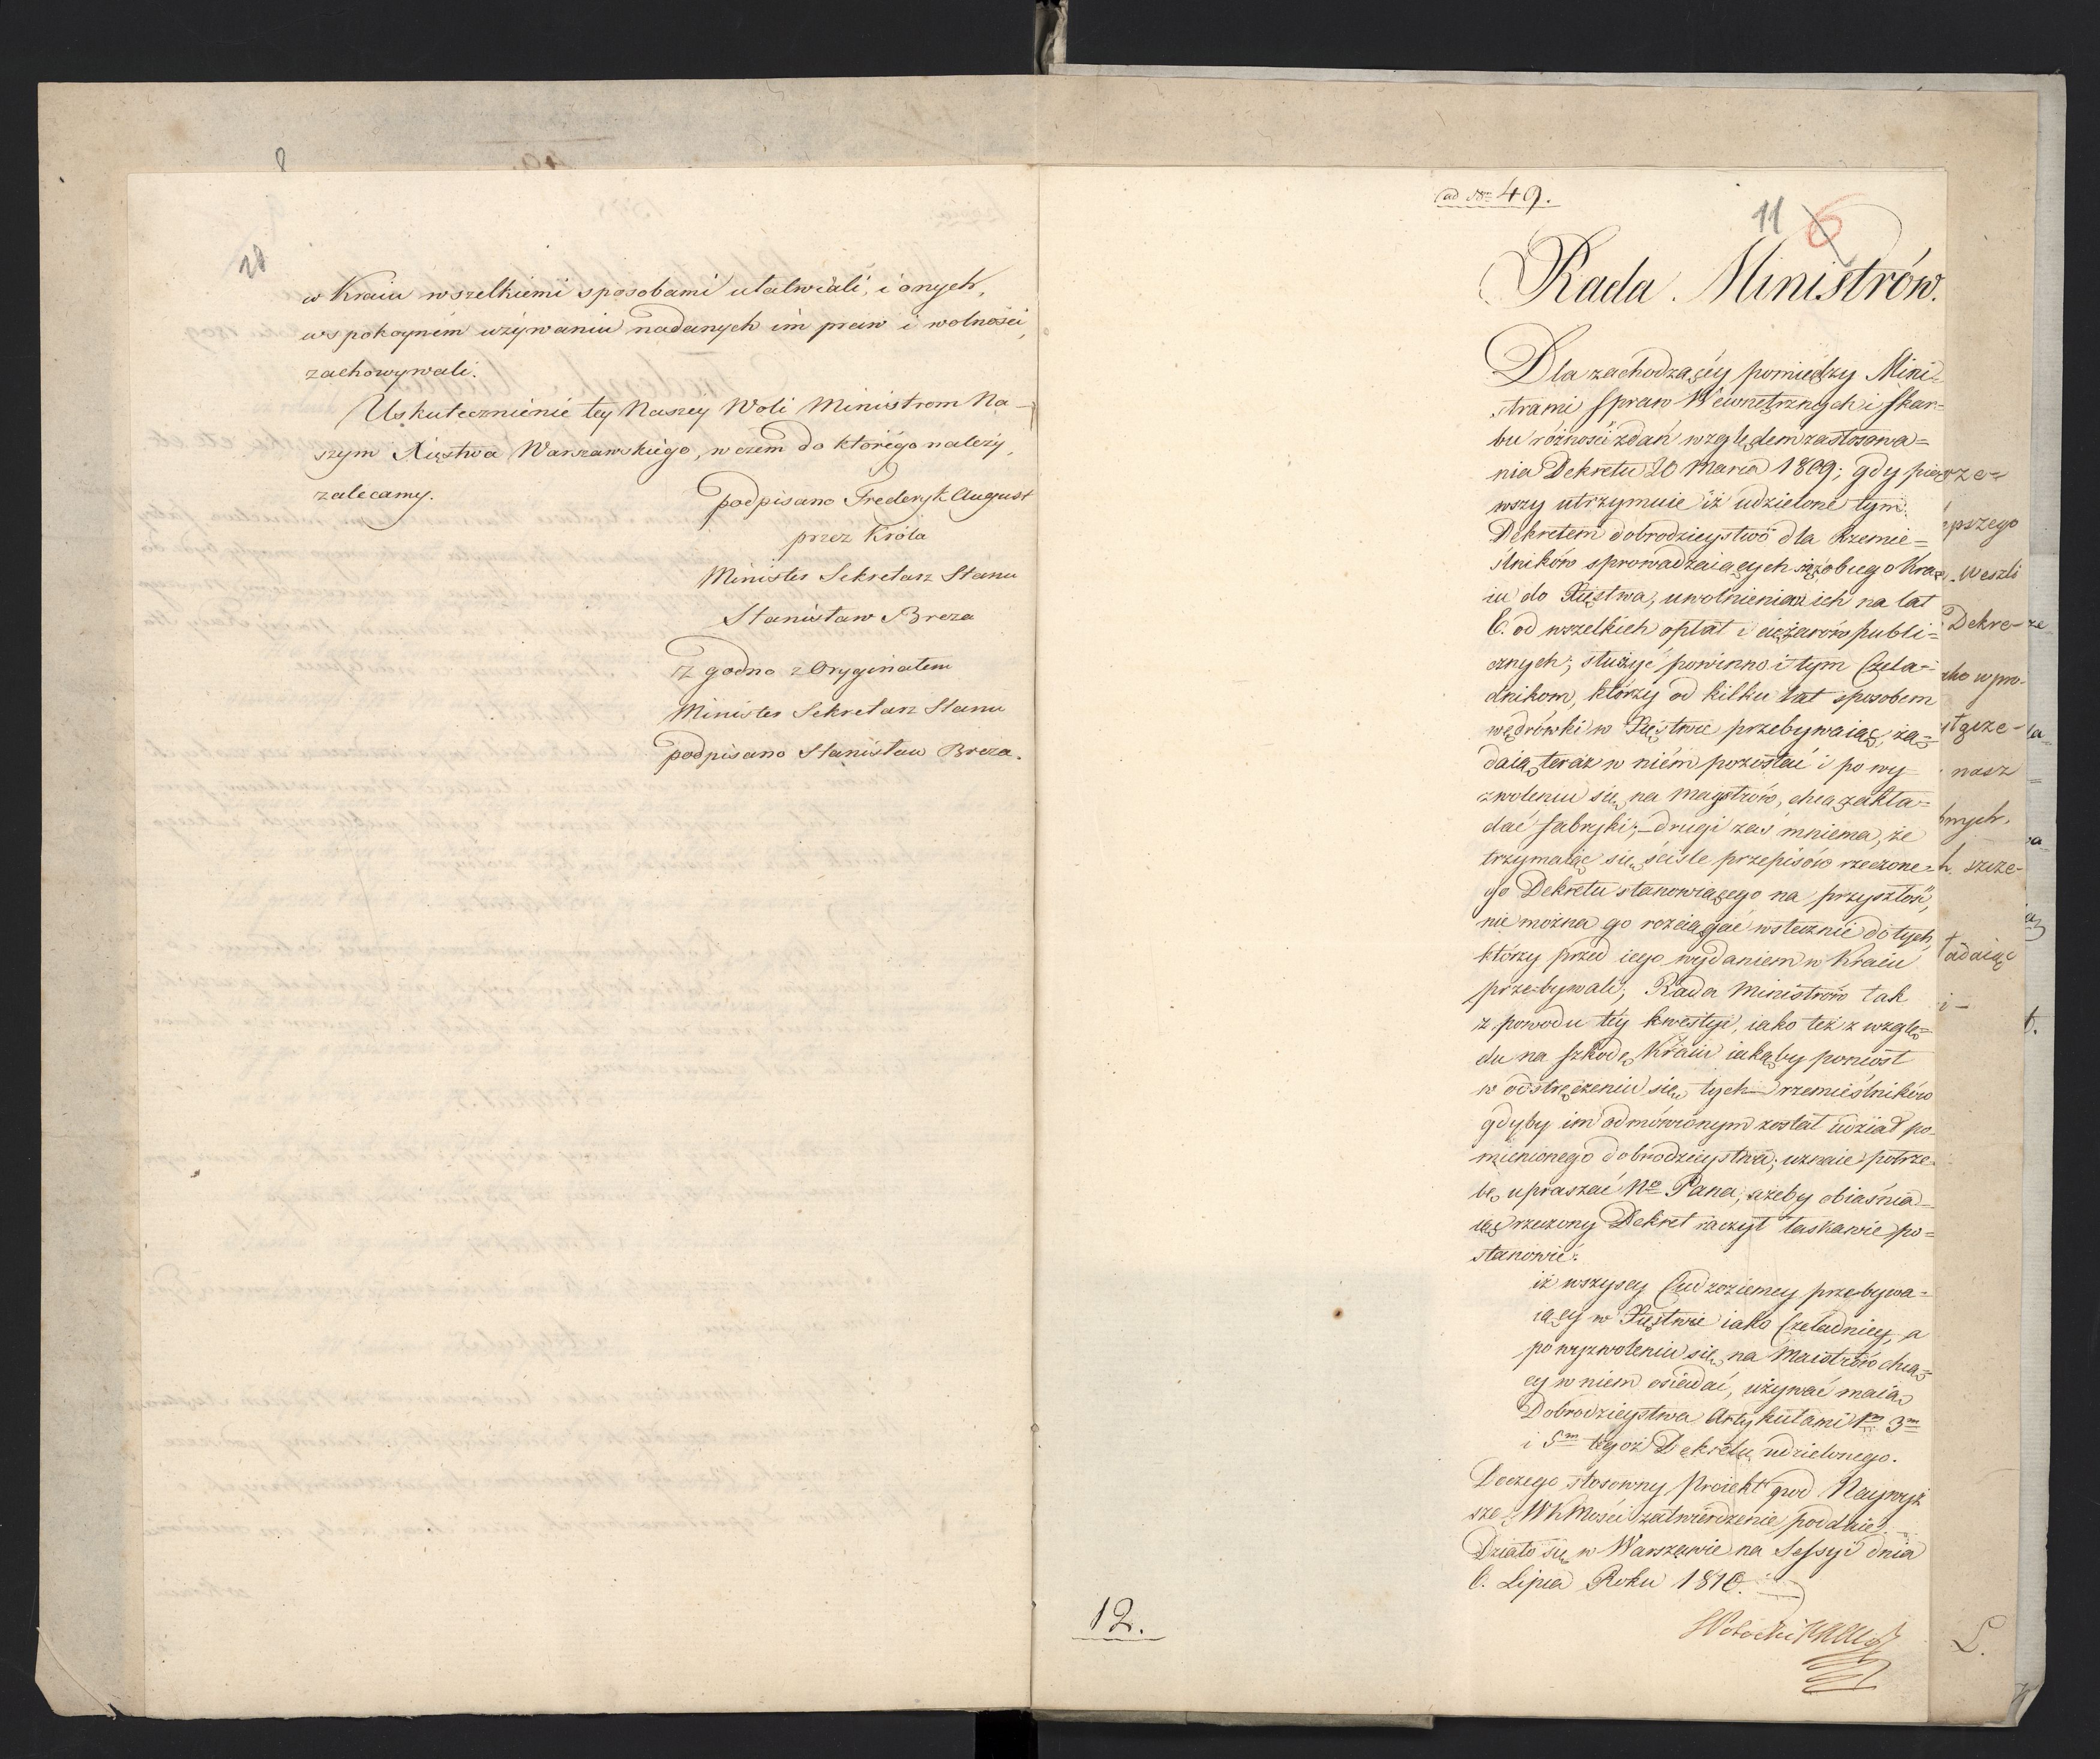 8
10
w Kraiu wszelkiemi sposobami ułatwiali, i onych,
w spokoynem używaniu nadanych im praw i wolności,
zachowywali.
Uskutecznienie tey Naszey Woli Ministrom Na-
szym Xięstwa Warszawskiego, w czem do którego należy,
zalecamy.
podpisano Frederyk August
przez Króla
Minister Sekretarz Stanu
Stanisław Breza
Zgodno z Oryginałem
Minister Sekretarz Stanu
podpisano Stanisław Breza.
ad Nrm 49.
11 6
Rada Ministrów.
Dla zachodzącéy pomiędzy Mini=
strami Spraw Wewnętrznych i Skar=
bu różności zdań względem zastosowa=
nia Dekretu 20 Marca 1809; gdy pier=
wszy utrzymuie iż udzielone tym
Dekretem dobrodzieystwo dla Rzemie=
ślników sprowadzaiących się z obcego Kra=
iu do Xięstwa, uwolnienia ich na lat
6. od wszelkich opłat i ciężarów publi=
cznych, służyć powinno i tym Czela=
dnikom, którzy od kilku lat sposobem
wędrówki w Xięstwie przebywaiąc, żą=
daią teraz w niém pozostać i po wy=
zwoleniu się na Maystrów, chcą zakła=
dać fabryki; – drugi zaś mniema, że
trzymaiąc się ściśle przepisów rzeczone=
go Dekretu stanowiącego na przyszłość,
nie można go rozciągać wstecznie do tych,
którzy przed iego wydaniem w Kraiu
przebywali; Rada Ministrów tak
z powodu téy kwestyi, iako też z wzglę=
du na szkodę Kraiu iakąby poniosł
w odstręczeniu się tych rzemieślników
gdyby im odmówionym został udział po=
mienionego dobrodzieystwa; uznaie potrze=
bę upraszać No Pana, ażeby obiaśnia=
iąc rzeczony Dekret raczył łaskawie po=
stanowić:
iż wszyscy Cudzoziemcy przebywa=
iący w Xięstwie iako Czeladnicy, a
po wyzwoleniu się na Maistrów chcą=
cy w niem osiadać, używać maią
Dobrodzieystwa Artykułami 1m 3m
i 5m tegoż Dekretu udzielonego.
Do czego stosowny Proiekt pod Naywyż
sze WKMości zatwierdzenie poddaie.
Działo się w Warszawie na Sessyi dnia
6. Lipca Roku 1810.
12.